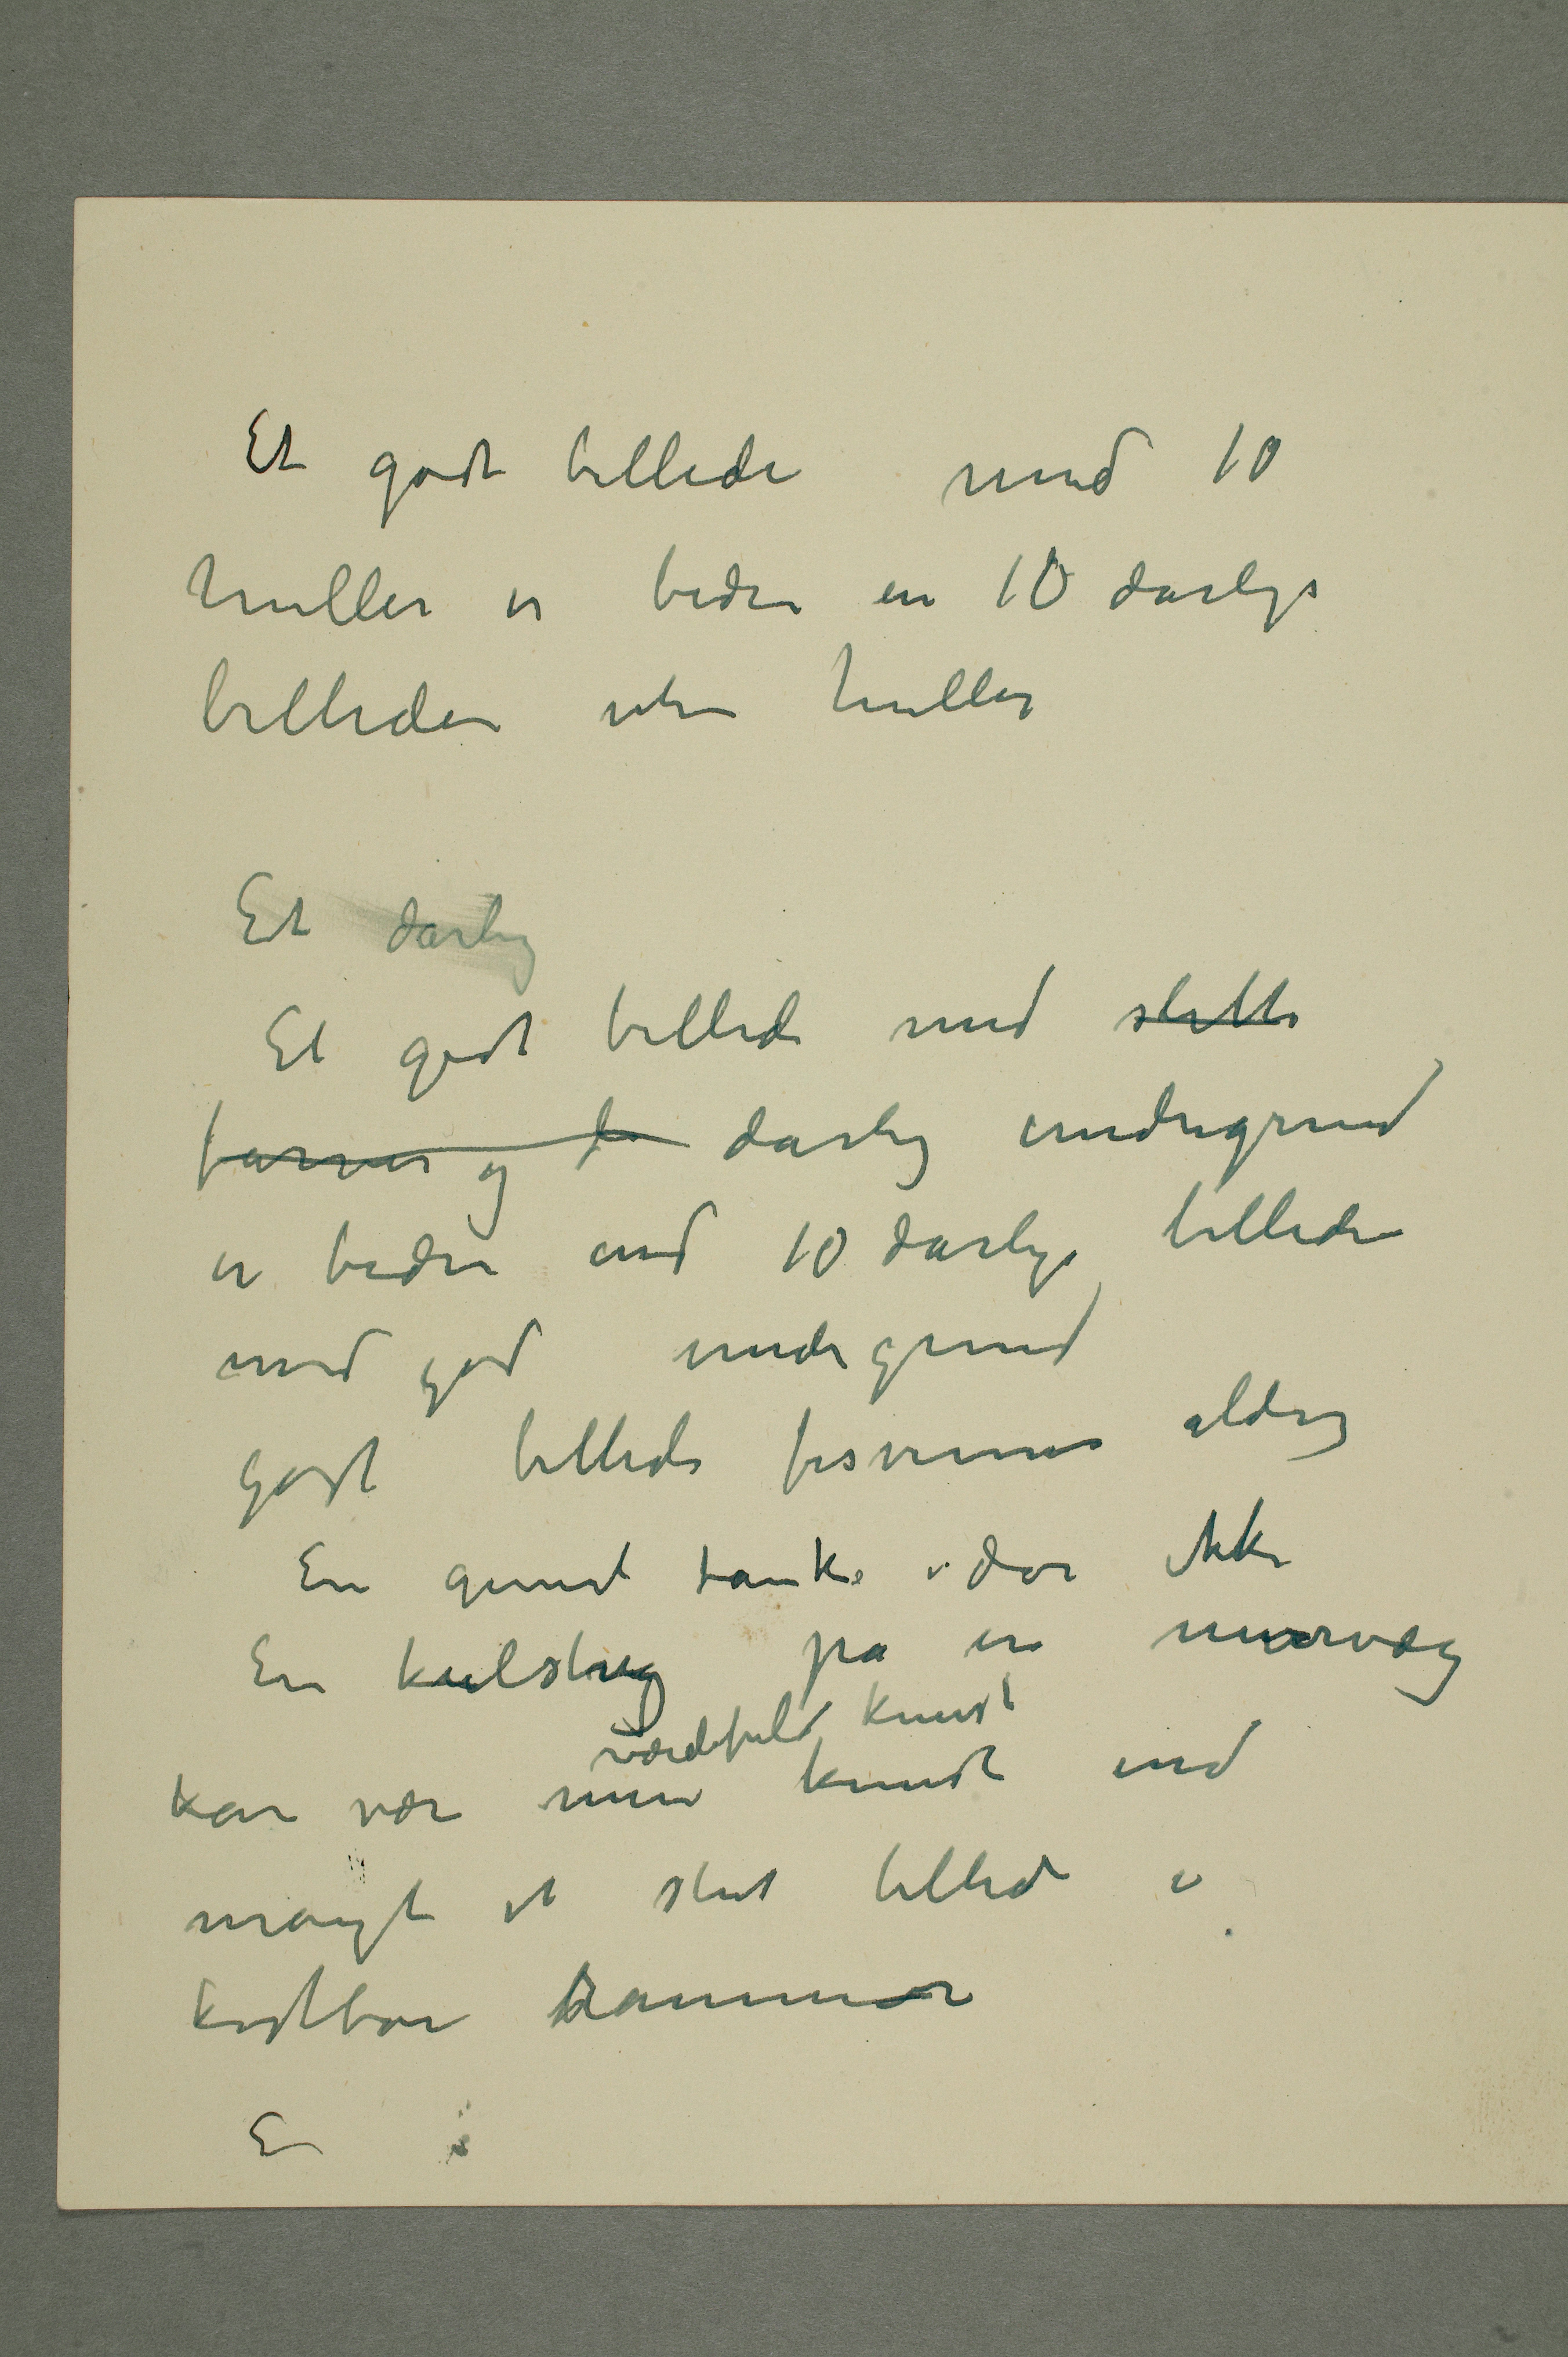 Et godt billede med 10
huller er bedre en 10 darlige
billeder uten huller
Et darlig
Et godt billede med slette
farver og darlig undergrund
er bedre end 10 darlige billeder
med god undergrund
godt billede forsvinner aldrig
En genial tanke dør ikke
En kulstreg pa en murvæg
værdifuld kunst
kan være mere kunst end
mangt et slet billede i
kostbar ramme
E